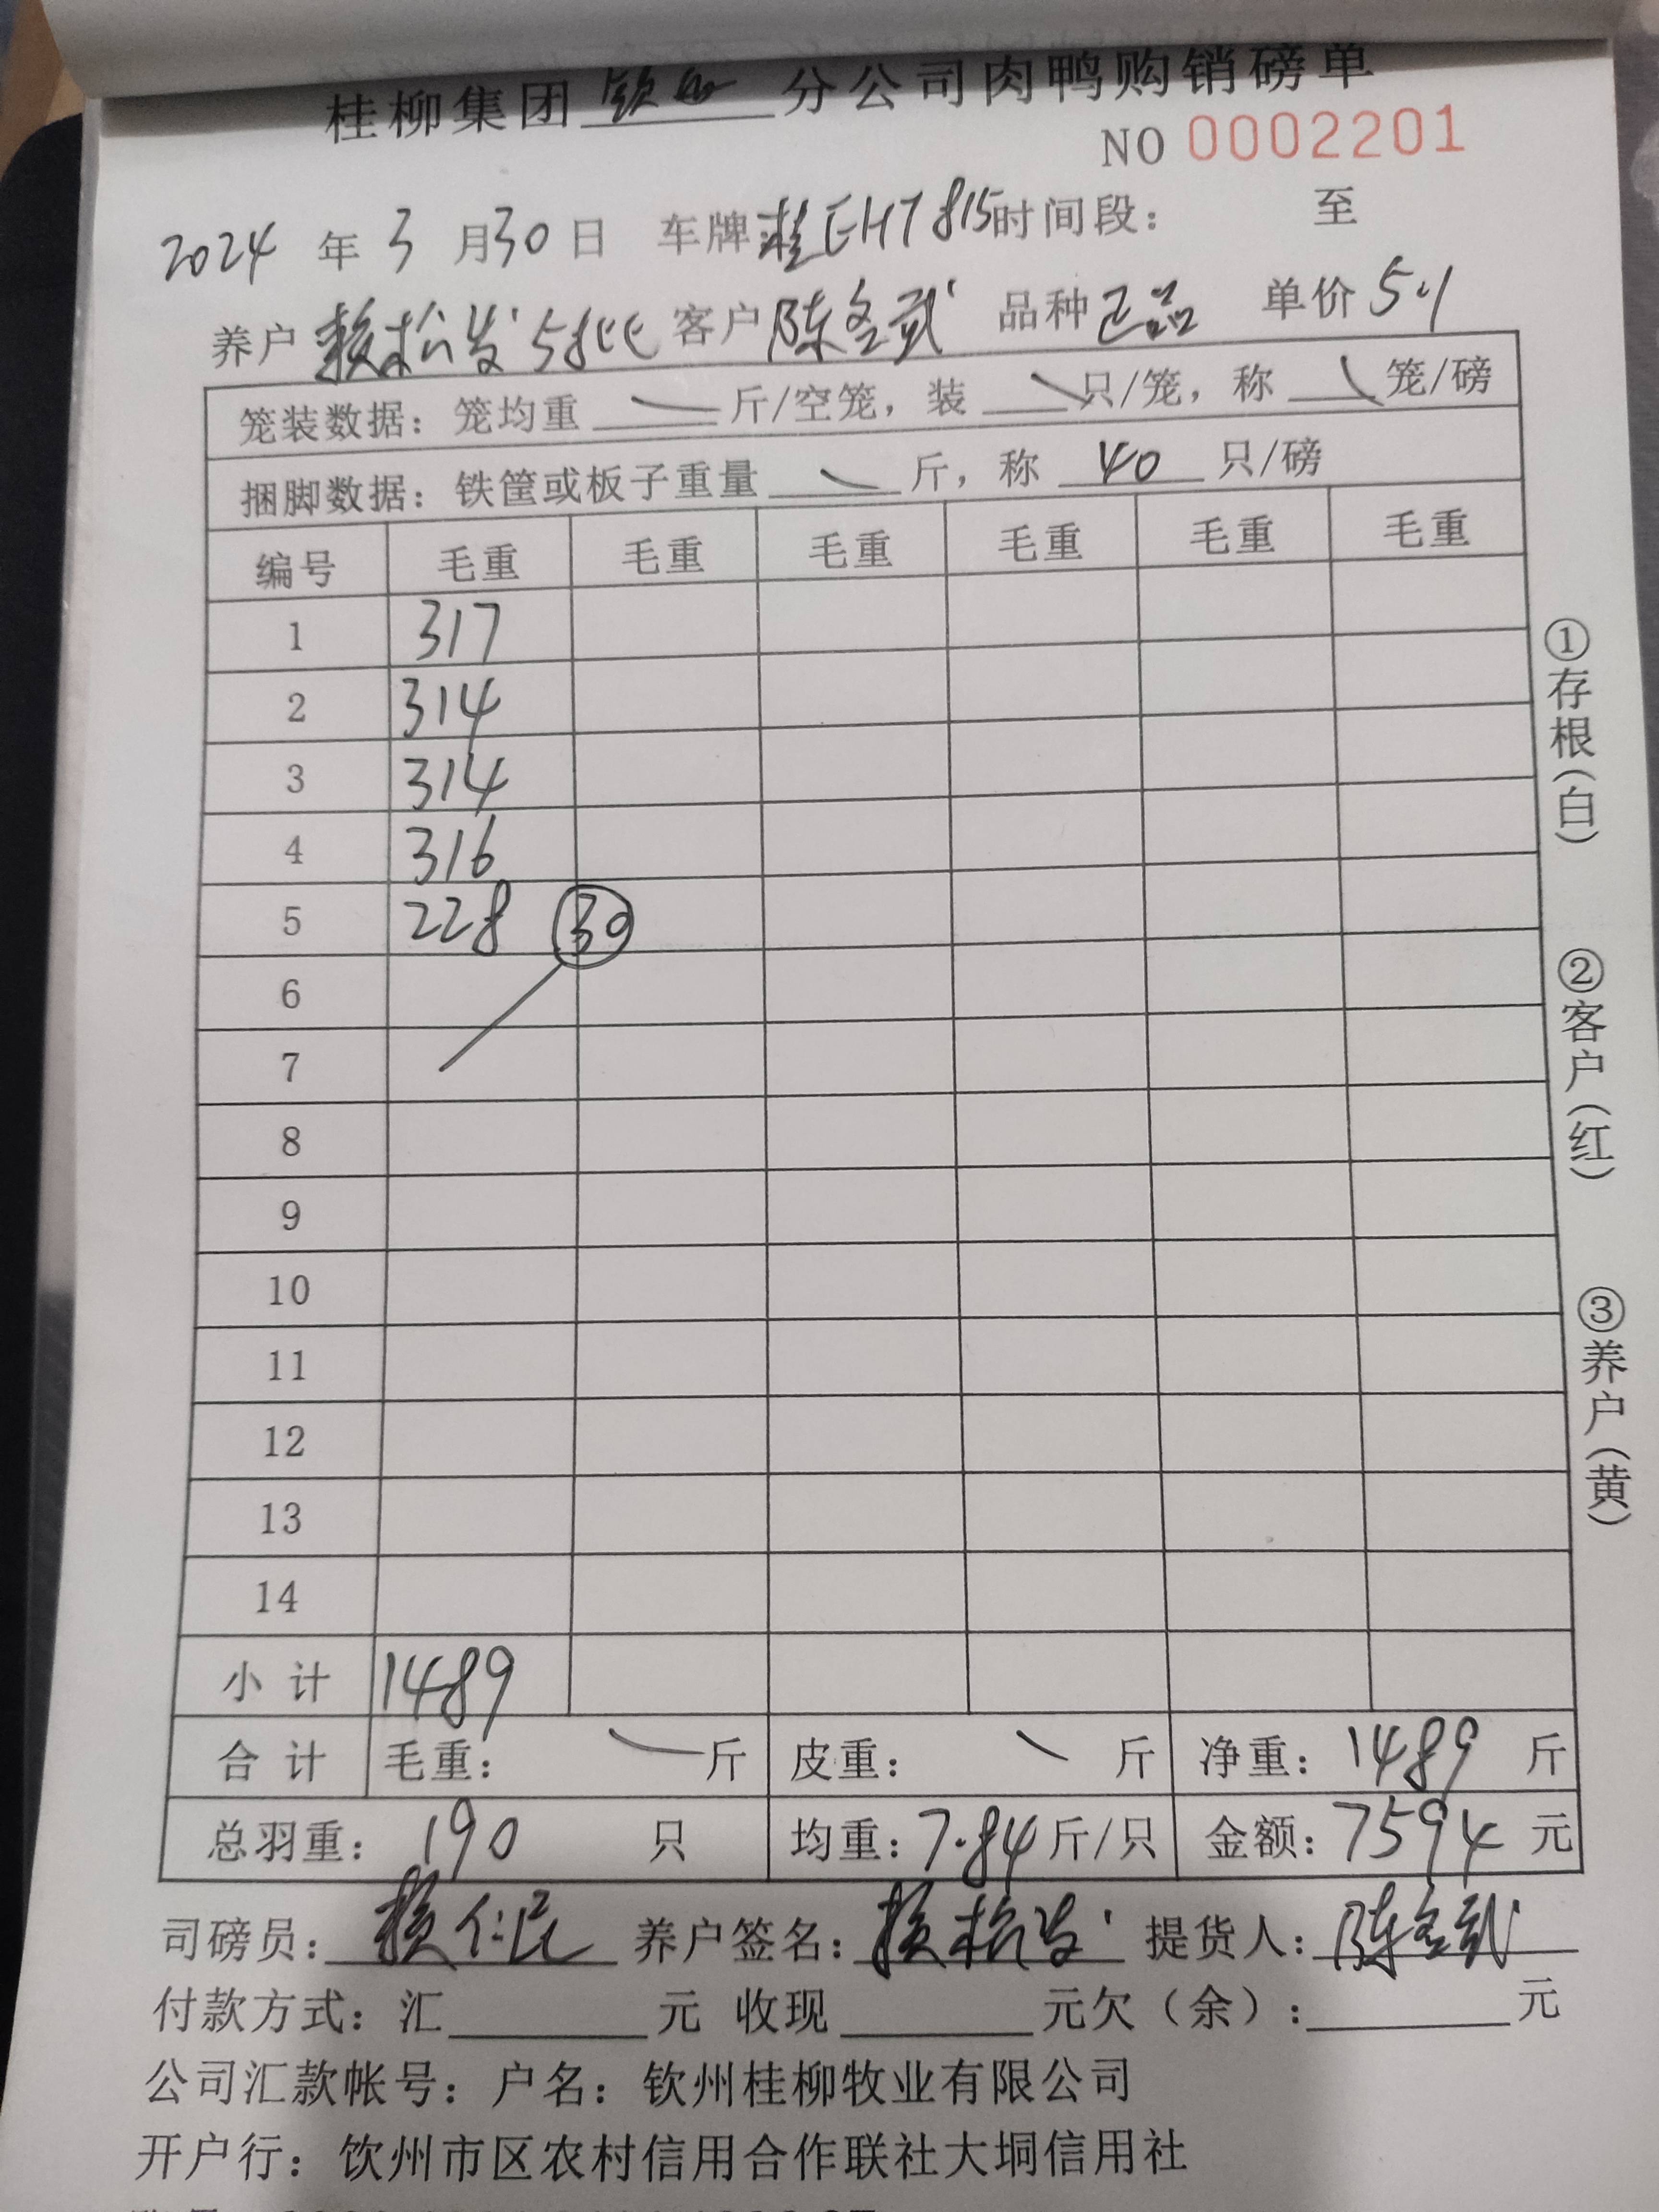 桂柳集团钦州分公司肉鸭购销磅单
NO 0002201
2024年3月30日 车牌桂EHT815时间段： 至
养户赖松发5批客户陈冬贰品种正品 单价5.1
笼装数据：笼均重 斤/空笼，装 只/笼，称 笼/磅
捆脚数据：铁筐或板子重量 斤，称 40 只/磅
编号 毛重 毛重 毛重 毛重 毛重 毛重
1 317
2 314
3 314
4 316
5 228 30
6
7
8
9
10
11
12
13
14
小 计 1489
合 计 毛重： 斤 皮重： 斤 净重：1489 斤
总羽重：190 只 均重：7.84斤/只 金额：7594元
司磅员：赖仁 养户签名：赖松发 提货人：陈冬贰
付款方式：汇 元 收现 元欠（余）： 元
公司汇款帐号：户名：钦州桂柳牧业有限公司
开户行：饮州市区农村信用合作联社大垌信用社
①存根(白)
②客户(红)
③养户(黄)